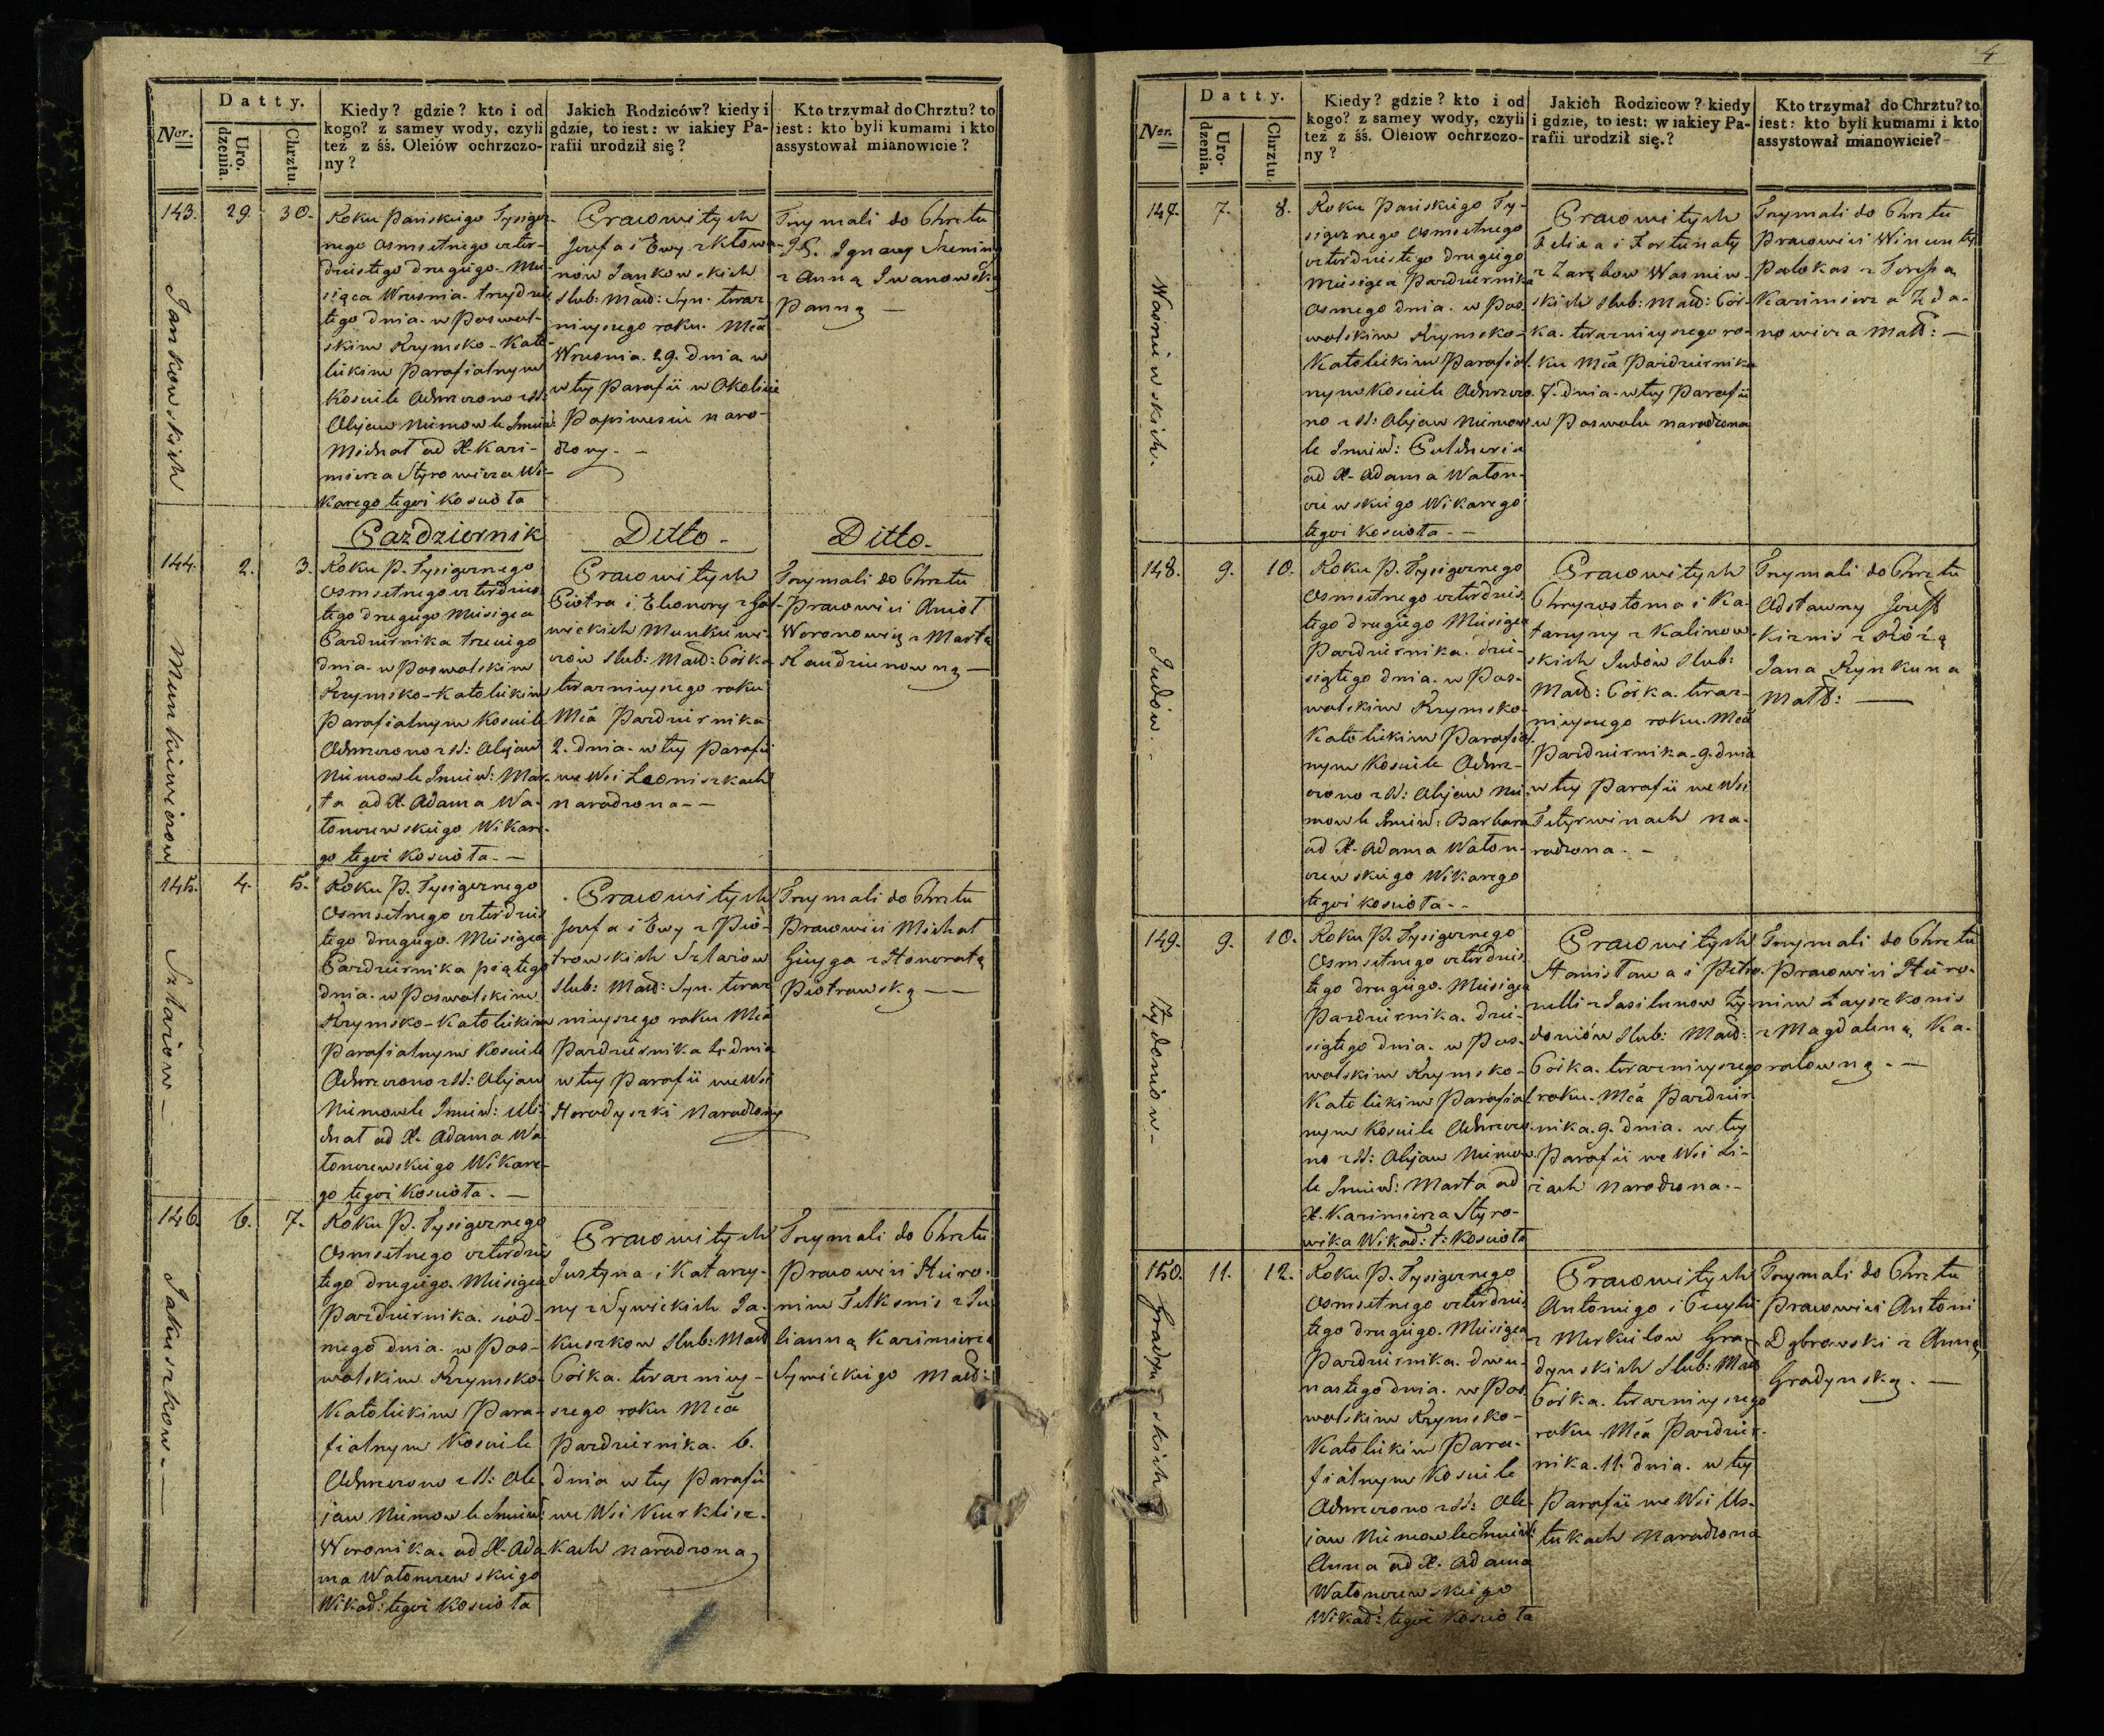 Datty.
Ner.
Uro. dzenia.
Chrztu.
Kiedy? gdzie? kto i od
kogo? z samey wody, czyli
też z śś. Oleiów ochrzczo-
ny?
Jakich Rodziców? kiedy i
gdzie, to iest: w iakiey Pa-
rafii urodził się?
Kto trzymał do Chrztu? to
iest: kto byli kumami i kto
assystował mianowicie?
143. 29. 30.
Jankowskich
Roku Pańskiego Tysiącz-
nego Osmsetnego czter-
dziestego drugiego Mie-
siąca Września trzydzies
tego dnia w Poswol-
skim Rzymsko-Kato-
lickim Parafialnym
Kosciele Ochrzczono z SS:
Olejow Niemowle Imien:
Michał od X. Kazi-
mierza Styrowicza Wi-
karego tegoż Koscioła
Prawowitych
Jozefa i Ewy z Kłowa-
now Jankowskich
slub: Małż: Syn. teraz-
nieyszego roku. Mca
Września. 29. dnia w
w tey Parafii w Okolicie
Popiwesiu naro-
dzony. -
Trzymali do Chrztu
JP. Ignacy
z Anną Iwanowską
Panną —
Październik
Ditto -
Ditto.
144. 2. 3.
Munkiewiczow
Roku P. Tysiącznego
Osmsetnego czterdzies
tego drugiego Miesiąca
Października trzeciego
dnia w Poswolskim
Rzymsko-Katolickim
Parafialnym Kosciele
Ochrzczono z SS: Olejow
Niemowle Imien: Mar-
ta od X. Adama Wa-
łonczewskiego Wikare-
go tegoż Kosciola. —
Prawowitych
Piotra i Eleonory z
wickich Munkiewi-
czów slub: Małż: Córka
teraznieyszego roku
Mca Października
2. dnia w tey Parafii
we Wsi Leoniszkach
narodzona - -
Trzymali do Chrztu
Prawowici Anioł
Woronowicz z Martą
—
145. 4. 5.
Szlazow —
Roku P. Tysiącznego
Osmsetnego czterdzies
tego drugiego. Miesiąca
Października piątego
dnia w Poswolskim
Rzymsko-Katolickim
Parafialnym Kosciele
Ochrzczono z SS: Olejow
Niemowle Imien: Mi-
chał od X. Adama Wa
łonczewskiego Wikare-
go tegoż Kosciola. —
Prawowitych
Jozefa i Ewy z Pio-
trowskich Szlazow
slub: Małż: Syn. teraz
nieyszego roku Mca
Października 4. dnia
w tey Parafii we Wsi
Horodyszki Narodzony
Trzymali do Chrztu
Prawowici Michał
z Honoratą
Piotrowską — —
146. 6. 7.
Jakuszkow —
Roku P. Tysiącznego
Osmsetnego czterdzies
tego drugiego Miesiąca
Października siód-
mego dnia w Pos-
wolskim Rzymsko-
Katolickim Para-
fialnym Kosciele
Ochrzczono z SS: Ole-
jow Niemowle Imien:
Weronika od X. Ada
ma Wałonczewskiego
Wikar: tegoż Kosciola
Prawowitych
Justyna i Katarzy-
ny z Sywickich Ja-
kuszkow slub: Małż
Córka. terazniey-
szego roku Mca
Października. 6.
dnia w tey Parafii
we Wsi Kurklisz-
kach narodzona
Trzymali do Chrztu
Prawowici Hiero-
nim Telksnis z Ju-
lianną Kazimierza
Sywickiego Małż:
4
Datty.
Ner.
Uro- dzenia.
Chrztu.
Kiedy? gdzie? kto i od
kogo? z samey wody, czyli
też z śś. Oleiow ochrzczo-
ny?
Jakich Rodzicow? kiedy
i gdzie, to iest: w iakiey Pa-
rafii urodził się.?
Kto trzymał do Chrztu? to
iest: kto byli kumami i kto
assystował mianowicie?
147. 7. 8.
Wasniewskich.
Roku Pańskiego Ty-
siącznego Osmsetnego
czterdziestego drugiego
Miesiąca Października
Osmego dnia w Pos-
wolskim Rzymsko-
Katolickim Parafial-
nym Kosciele Ochrzczo-
no z SS: Olejow Niemow
le Imien: Pulcheria
od X. Adama Wałon-
czewskiego Wikarego
tegoż Kosciola. —
Prawowitych
Felixa i Fortunaty
z Zarębow Wasniew-
skich slub: Małż: Cór-
ka. teraznieyszego ro-
ku Mca Października
7. dnia w tey Parafii
w Poswolu narodzona
Trzymali do Chrztu
Prawowici Wincenty
Palokas z Teressą
Kazimierza Zda-
nowicza Małż: —
148. 9. 10.
Judow. -
Roku P. Tysiącznego
Osmsetnego czterdzies
tego drugiego Miesiąca
Października. dzie-
siątego dnia w Pos-
wolskim Rzymsko-
Katolickim Parafial-
nym Kosciele Ochrz-
czono z SS: Olejow Nie-
mowle Imien: Barbara
od X. Adama Wałon-
czewskiego Wikarego
tegoż Kosciola. -
Prawowitych
Chryzostoma i Ka-
tarzyny z Kalinow-
skich Judów slub:
Małż: Córka. teraz-
nieyszego roku. Mca
Października. 9. dnia
w tey Parafii we Wsi
Tetyrwinach na-
rodzona. -
Trzymali do Chrztu
Odstawny Jozeff
Kiznis z Rózą
Jana Rynkuna
Małż: —
149. 9. 10.
Zydoniow —
Roku P. Tysiącznego
Osmsetnego czterdzies
tego drugiego. Miesiąca
Października. dzie-
siątego dnia. w Pos-
wolskim Rzymsko-
Katolickim Parafial
nym Kosciele Ochrzczo-
no z SS: Olejow Niemow
le Imien: Marta od
X. Kazimierza Styro-
wicza Wikar: t: Kosciola
Prawowitych
Stanisława i Petro-
nelli z Jasilunow Zy-
doniów slub: Małż:
Córka. teraznieyszego
roku. Mca Paździer
nika. 9. dnia. w tey
Parafii we Wsi Li-
ziach Narodzona. -
Trzymali do Chrztu
Prawowici Hiero-
nim Łayszkonis
z Magdaleną Ka-
rolowną. —
150. 11. 12.
Gradynskich
Roku P. Tysiącznego
Osmsetnego czterdzies
tego drugiego. Miesiąca
Października. dwu-
nastego dnia. w Pos
wolskim Rzymsko-
Katolickim Para-
fialnym Kosciele
Ochrzczono z SS: Ole-
jow Niemowle Imien:
Anna od X. Adama
Wałonczewskiego
Wikar: tegoż Kosciola
Prawowitych
Antoniego i Cecylii
z Merkielow Gra-
dynskich slub: Małż
Córka. teraznieyszego
roku. Mca Paździer-
nika. 11. dnia. w tey
Parafii we Wsi Us-
tukach Narodzona
Trzymali do Chrztu
Prawowici Antoni
Dąbrowski z Anną
Gradynską. —